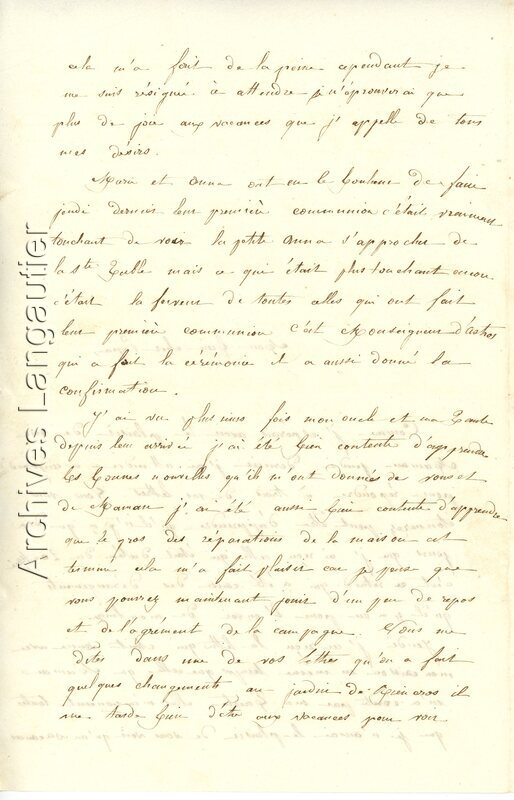 cela m'a fait de la peine cependant je
me suis résignée à attendre je n'éprouverai que
plus de joie aux vacances que j'appelle de tous
mes désirs.
Marie et Anna ont eu le bonheur de faire
jeudi dernier leur première communion c'était vraiment
touchant de voir la petite Anna s'approcher de
la Ste Table mais ce qui était plus touchant encore
c'était la ferveur de toutes celles qui ont fait
leur première communion c'est Monseigneur d'Astros
qui a fait la cérémonie il a aussi donné la
confirmation.
J'ai vu plusieurs fois mon oncle et ma Tante
depuis leur arrivée j'ai été bien contente d'apprendre
les bonnes nouvelles qu'ils m'ont données de vous et
de Maman j'ai été aussi bien contente d'apprendre
que le gros des réparations de la maison est
terminé cela m'a fait plaisir car je pense que
vous pourrez maintenant jouir d'un peu de repos
et de l'agrément de la campagne. Vous me
dites dans une de vos lettres qu'on a fait
quelques changements au jardin de il
me tarde bien d'être aux vacances pour voir
Archives Langautier